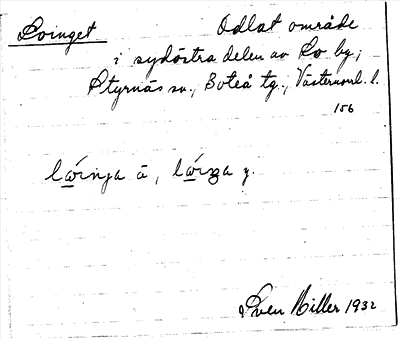 Loinget Odlat område
i sydöstra delen av Lo by;
Styrnäs sn., Boteå tg., Västernorrl. l.
156
ā, y.
Sven Hiller 1932